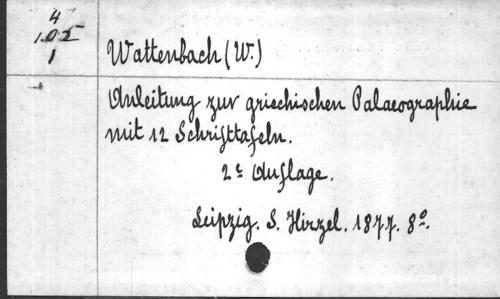 4
105
1
Wattenbach (W.)
Anleitung zur griechischen Palaeographie
mit 12 Schrifttafeln.
2e Auflage.
Leipzig. S. Hirzel. 1877. 8o.